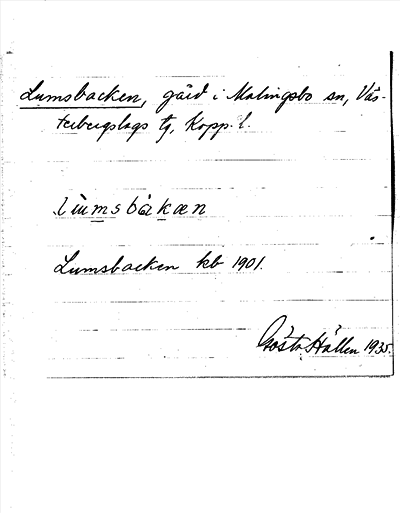 Lumsbacken, gård i Malingsbo sn, Väs-
terbergslags tg, Kopp. l.
lùmsbàkæn
Lumsbacken kb 1901.
Gösta Hallén 1935.